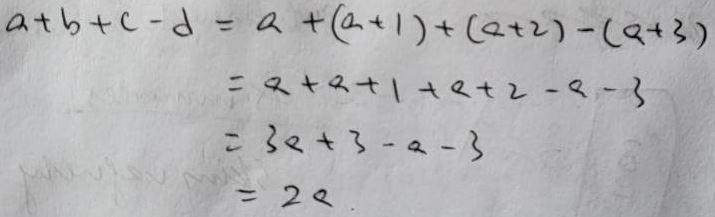 a+b+c-d = a+(a+1)+(a+2)-(a+3)
= a+a+1+a+2-a-3
= 3a+3-a-3
= 2a.